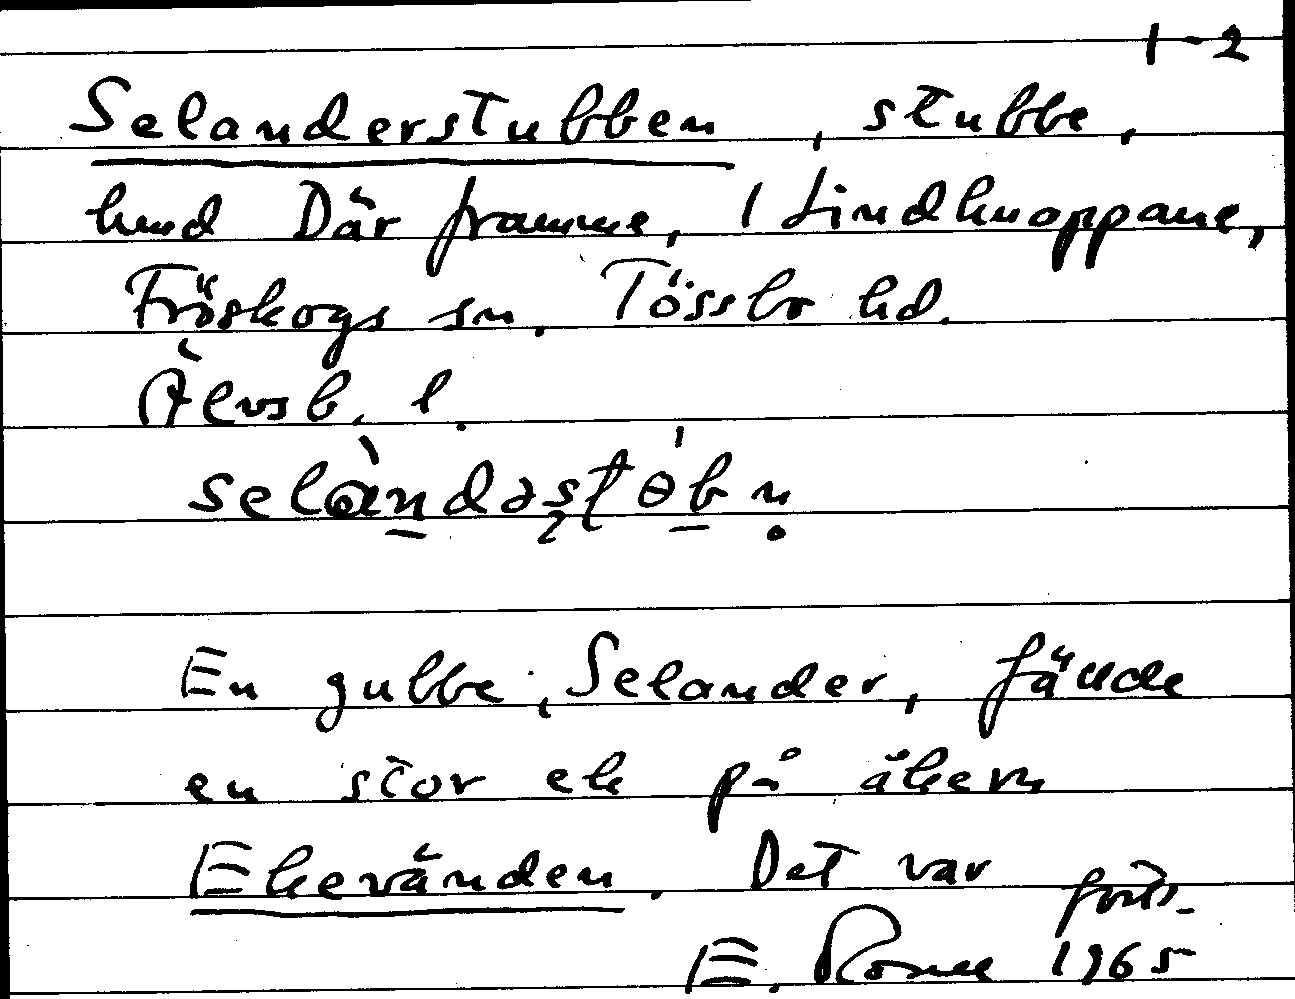 1-2
Selanderstubben, stubbe,
hmd Där framme, 1 Lindknoppane,
Fröskogs sn. Tössbo hd.
Älvsb. l.
En gubbe, Selander, fällde
en stor ek på åkern
Ekevänden. Det var forts.
E. 1965